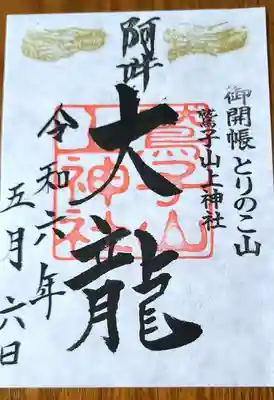 御開帳 とりのこ山
鷲子山上神社
阿吽
大龍
鷲子山
上神社
令和六年
五月六日